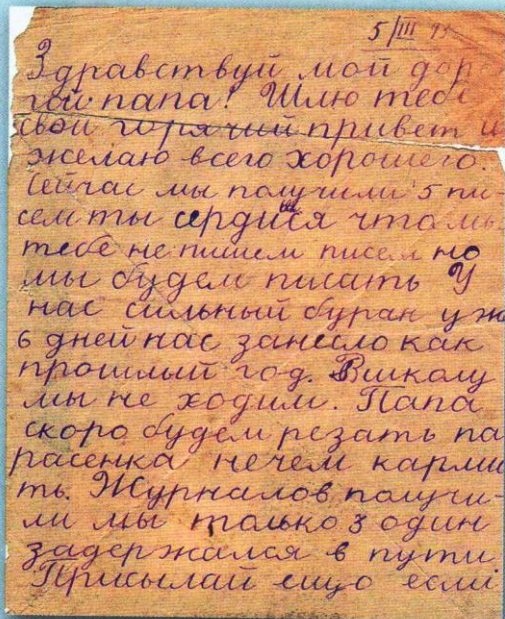 5/III
Здравствуй мой доро
гой папа! Шлю тебе
свой горячий привет и
желаю всего хорошего.
Сейчас мы получили 5 пи-
сем ты сердишся что мы
тебе не пишем писем но
мы будем писать У
нас сильный буран уж
6 дней нас занесло как
прошлый год. Вшколу
мы не ходим. Папа
скоро будем резать па
расенка нечем карми
ть. Журналов получи-
ли мы только 3 один
задержался в пути
Присылай ещо если